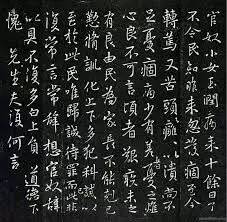 官奴小女玉潤病来十餘日了
不令民知昨来忽發痼至今
轉篤又苦頭癰頭癰以潰尚不
足憂痼病少有差者憂之燋
心良不可言頃者艱疾未之
有良由民為家長不能克己
懃脩訓化上下多犯科誡以
至於此民唯歸誠待罪而已此非
復常言常辭想官奴辭
以具不復多白上負道德下
愧先生夫復何言